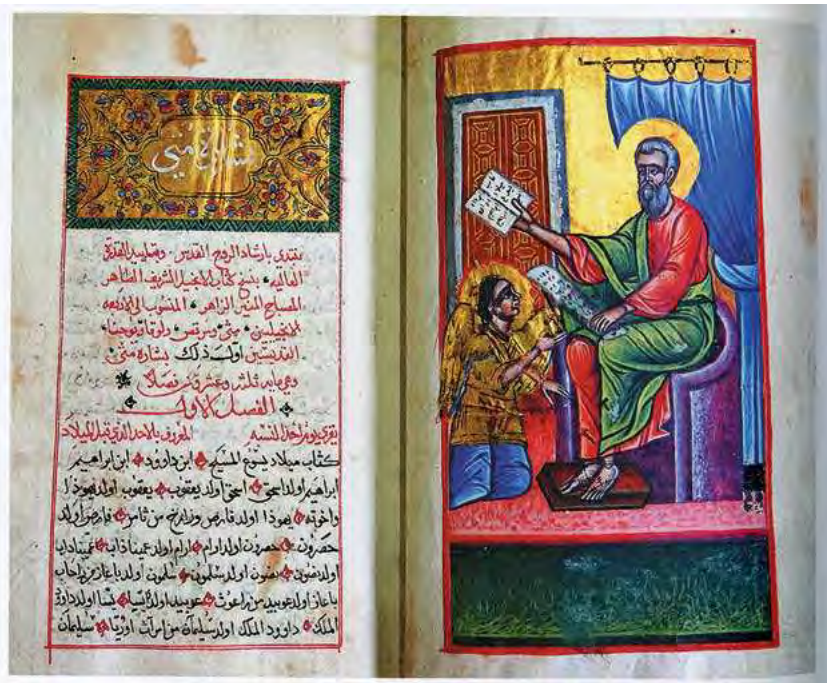 بشارة متى
نبتدي بارشاد الروح القدس
كتاب الانجيل الشريف الطاهر
المصباح المنير الزاهر المنسوب الى الاربعه
الانجيليين متى ومرقس ولوقا ويوحنا
القديسين اول ذلك بشارة متى
وهي مايه فصلا
الفصل الاول
يقرى يوم احد النسبه المعروف بالاحد الذي قبل الميلاد
كتاب ميلاد يسوع المسيح ابن داوود ابن ابراهيم
ابراهيم اولد اسحق اسحق اولد يعقوب يعقوب اولد يهوذا
واخوته يهوذا اولد فارص وزارح من ثامر فارص اولد
حصرون حصرون اولد ارام ارام اولد عميناداب عميناداب
اولد نصون نصون اولد سلمون سلمون اولد باعاز من راحاب
باعاز اولد عوبيد من راعوث عوبيد اولد ايسا يسا اولد داوود
الملك داوود الملك اولد سليمان من امراة اوريا سليمان